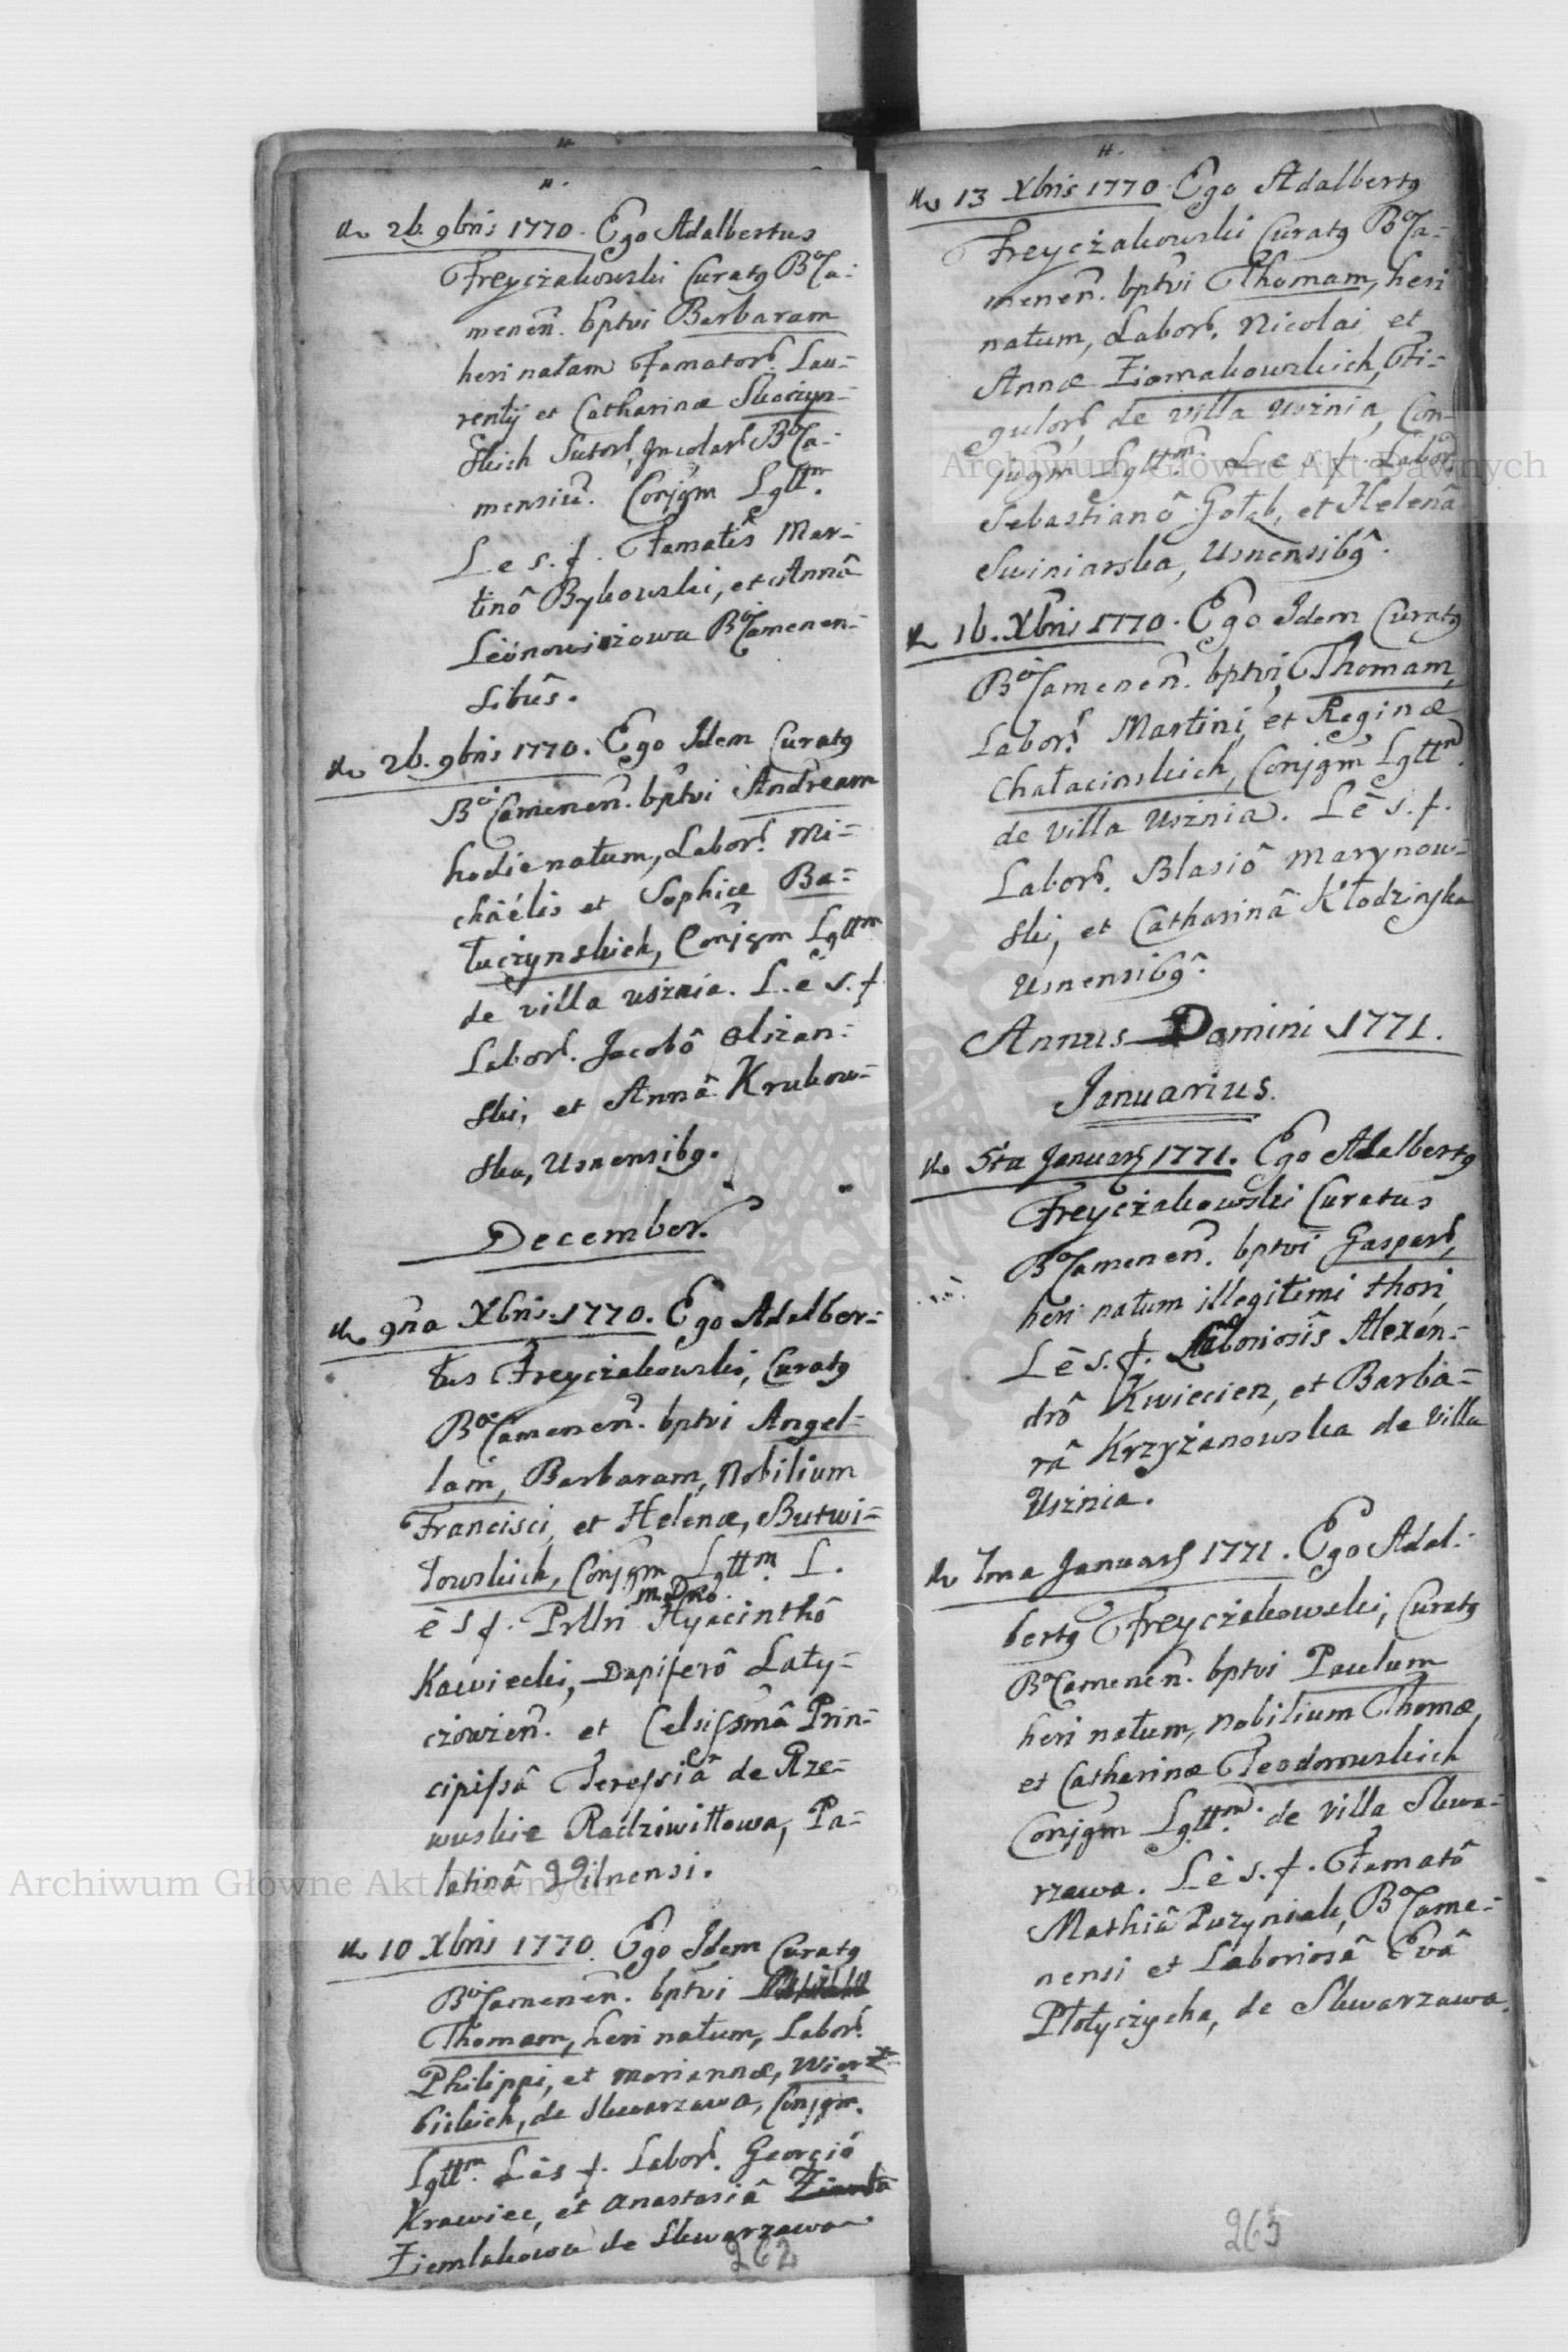 26. 9bris 1770. Ego Adalbertus
Freyczakowski Curatg Bo͡Ca-
menen. bptvi Barbaram
heri natam Famator. Lau-
rentij et Catharinæ Skoczyn-
skich Sutor, Incolar Bo͡Ca-
mensiũ. Conjgm Lgttm.
L e s. f. Famatis Mar-
tinô Bykowski, et Annâ
Leonowiczowa Bo͡Camenen-
sibus.
26. 9bris 1770. Ego Idem Curatg
Bo͡Camenen. bptvi Andream
hodie natum, Labor. Mi-
chaélis et Sophiæ Ba-
łuczynskich, Conjgm Lgttm
de villa Usznia. L. e s. f.
Labor. Jacobô Olszan-
ski, et Annâ Krukow-
ska, Usnensibg.
December.
9na Xbris 1770. Ego Adalber-
tus Freyczakowski, Curatg
Bo͡Camenen. bptvi Angel-
lam, Barbaram, Nobilium
Francisci, et Helenæ, Butwi-
łowskich, Conjgm Lgttm. L.
è s f. Prllri M. Dno Hyacinthô
Kawiecki, Dapiferô Laty-
czowien. et Celsissmâ Prin-
cipissâ Teressiâ de Rze-
wuskie Radziwiłłowa, Pa-
latinâ Vilnensi.
10 Xbris 1770. Ego Idem Curatg
Bo͡Camenen. bptvi
Thomam, heri natum, Labor.
Philippi, et Mariannæ, Wierz-
bickich, de Skwarzawa, Conjgm.
Lgttm. L è s f. Labor. Georgiô
Krawiec, et Anastasiâ
Ziemlakowa de Skwarzawa
262
13 Xbris 1770. Ego Adalbertg
Freyczakowski Curatg Bo͡Ca-
menen. bptvi Thomam, heri
natum, Labor. Nicolai et
Annæ Ziomakowskich, Fi-
gulor, de villa Usznia, Con-
jugm Lgttm. L e s f. Labor
Sebastianô Gołab, et Helenâ
Swiniarska, Usnensibg.
16. Xbris 1770. Ego Idem Curatg
Bo͡Camenen. bptvi Thomam,
Labor. Martini et Reginæ
Chałacinskich, Conjgm Lgttm.
de villa Usznia. L è s. f.
Labor. Blasiô Marynow-
ski, et Catharinâ Kłodzinska
Usnensibg.
Annus Domini 1771.
Januarius.
5ta Januarj 1771. Ego Adalbertg
Freyczakowski Curatus
Bo͡Camenen. bptvi Gaspar,
heri natum illegitimi thori,
L è s. f. Laboriosis Alexán-
drô Kwiecien, et Barba-
râ Krzyżanowska de Villa
Usznia.
7ma Januarj 1771. Ego Adal-
bertg Freyczakowski, Curatg
Bo͡Camenen. bptvi Paulum
heri natum, Nobilium Thomæ,
et Catharinæ Teodorowskich
Conjgm Lgttm. de villa Skwa-
rzawa. L è s. f. Famatô
Mathiâ Puzyniak, Bo͡Came-
nensi et Laboriosâ Evâ
Płotyczycha, de Skwarzawa.
265
Archiwum Główne Akt Dawnych
Archiwum Główne Akt Dawnych